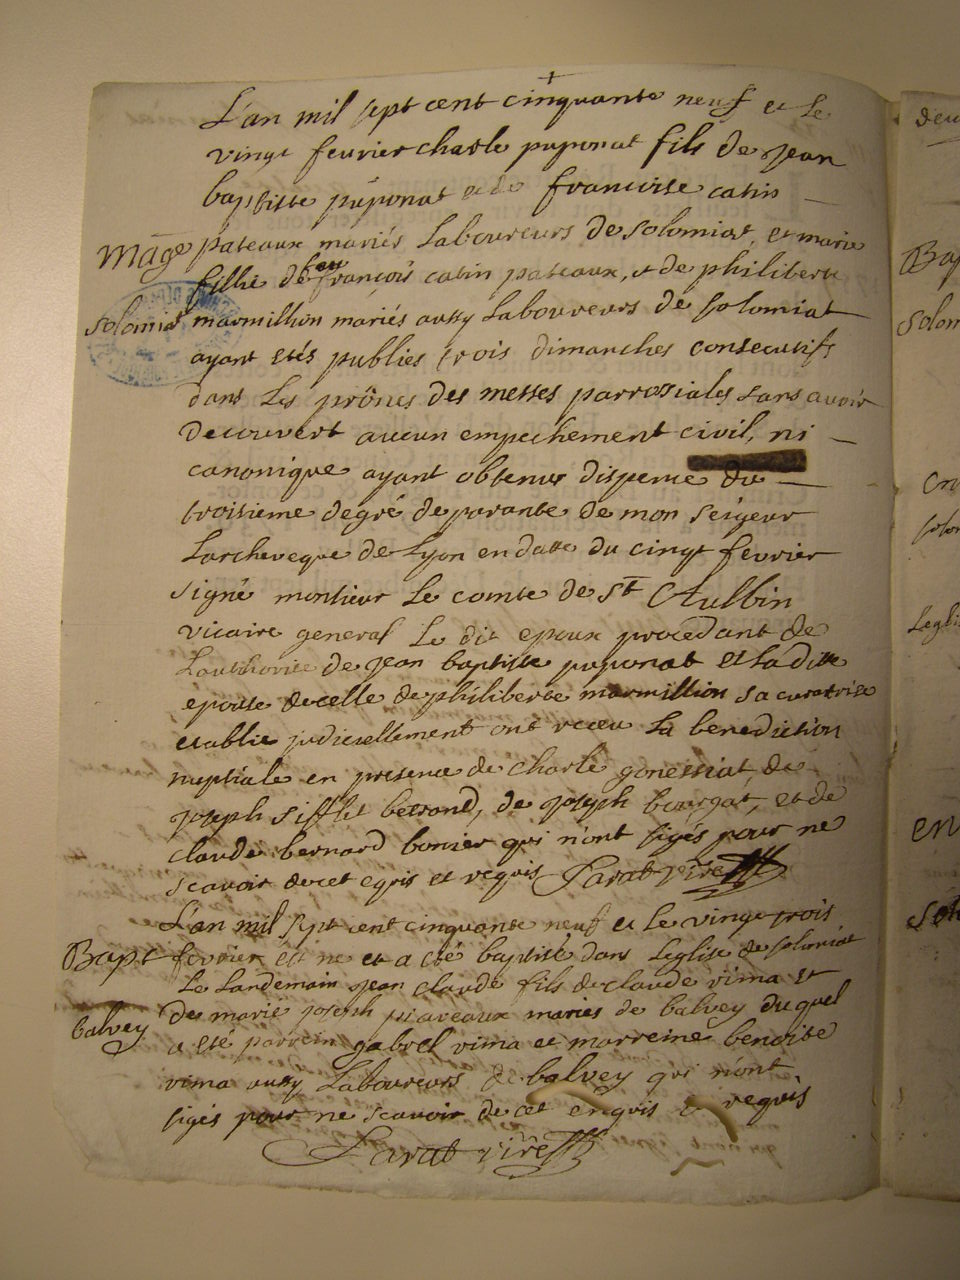 L'an mil sept cent cinquante neuf et le
vingt fevrier charle puponat fils de jean
baptiste puponat et de francoise catin
Mage pateaux mariés Laboureurs de Solomiat, et marie
fillie de feu françois catin pateaux, et de philiberte
Solomiat marmillion mariés aussy Laboureurs de solomiat
ayant etés publiés trois dimanches consecutifs
dans Les prônes des messes parrossiales sans avoir
decouvert aucun empechement civil, ni
canonique ayant obtenus dispense du
troisieme degré de parante de mon seigeur
Larcheveque de Lyon en datte du cingt fevrier
signé montieur Le comte de St Aulbin
vicaire general Le dit epoux procedant de
Lauthorite de jean baptiste puponat et La ditte
epouse de celle de philiberte marmillion sa curatrise
etablie judiciellement ont receu La benediction
nuptiale en presence de charle gonessiat, de
joseph Sifflit betrond, de joseph bourgat, et de
claude bernard bonier qui n'ont sigés pour ne
scavoir de cet eqris et reqris Sarat vire
L'an mil sept cent cinquante neuf et Le vingt trois
Bapt fevrier est ne et a eté baptisé dans Leglise de solomiat
Le Landemain jean claude fils de claude vima et
balvey de marie joseph piaveaux mariés de balvey duquel
a eté parrein gabriel vima et marreine benoite
vima aussy Laboureurs de balvey qui n'ont
sigés pour ne scavoir de cet enquis et requis
Sarat vire
deu
Bap
Solom
Leglis
en